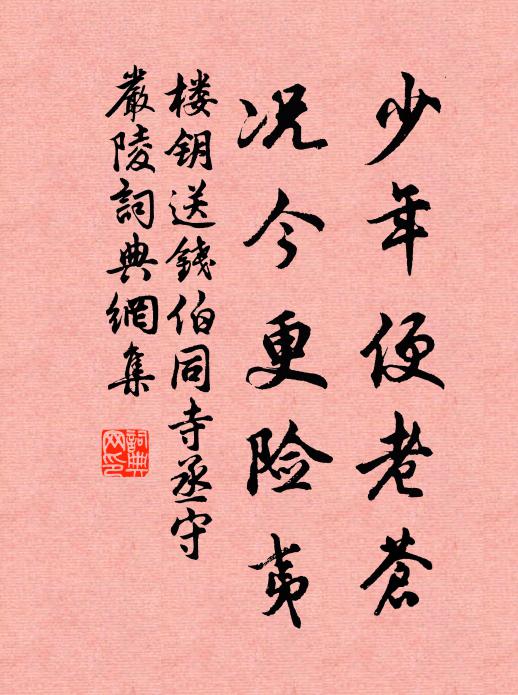 少年便老蒼
况今更险夷
楼钥送錢伯同寺丞守
嚴陵詞典網集
詞典网印